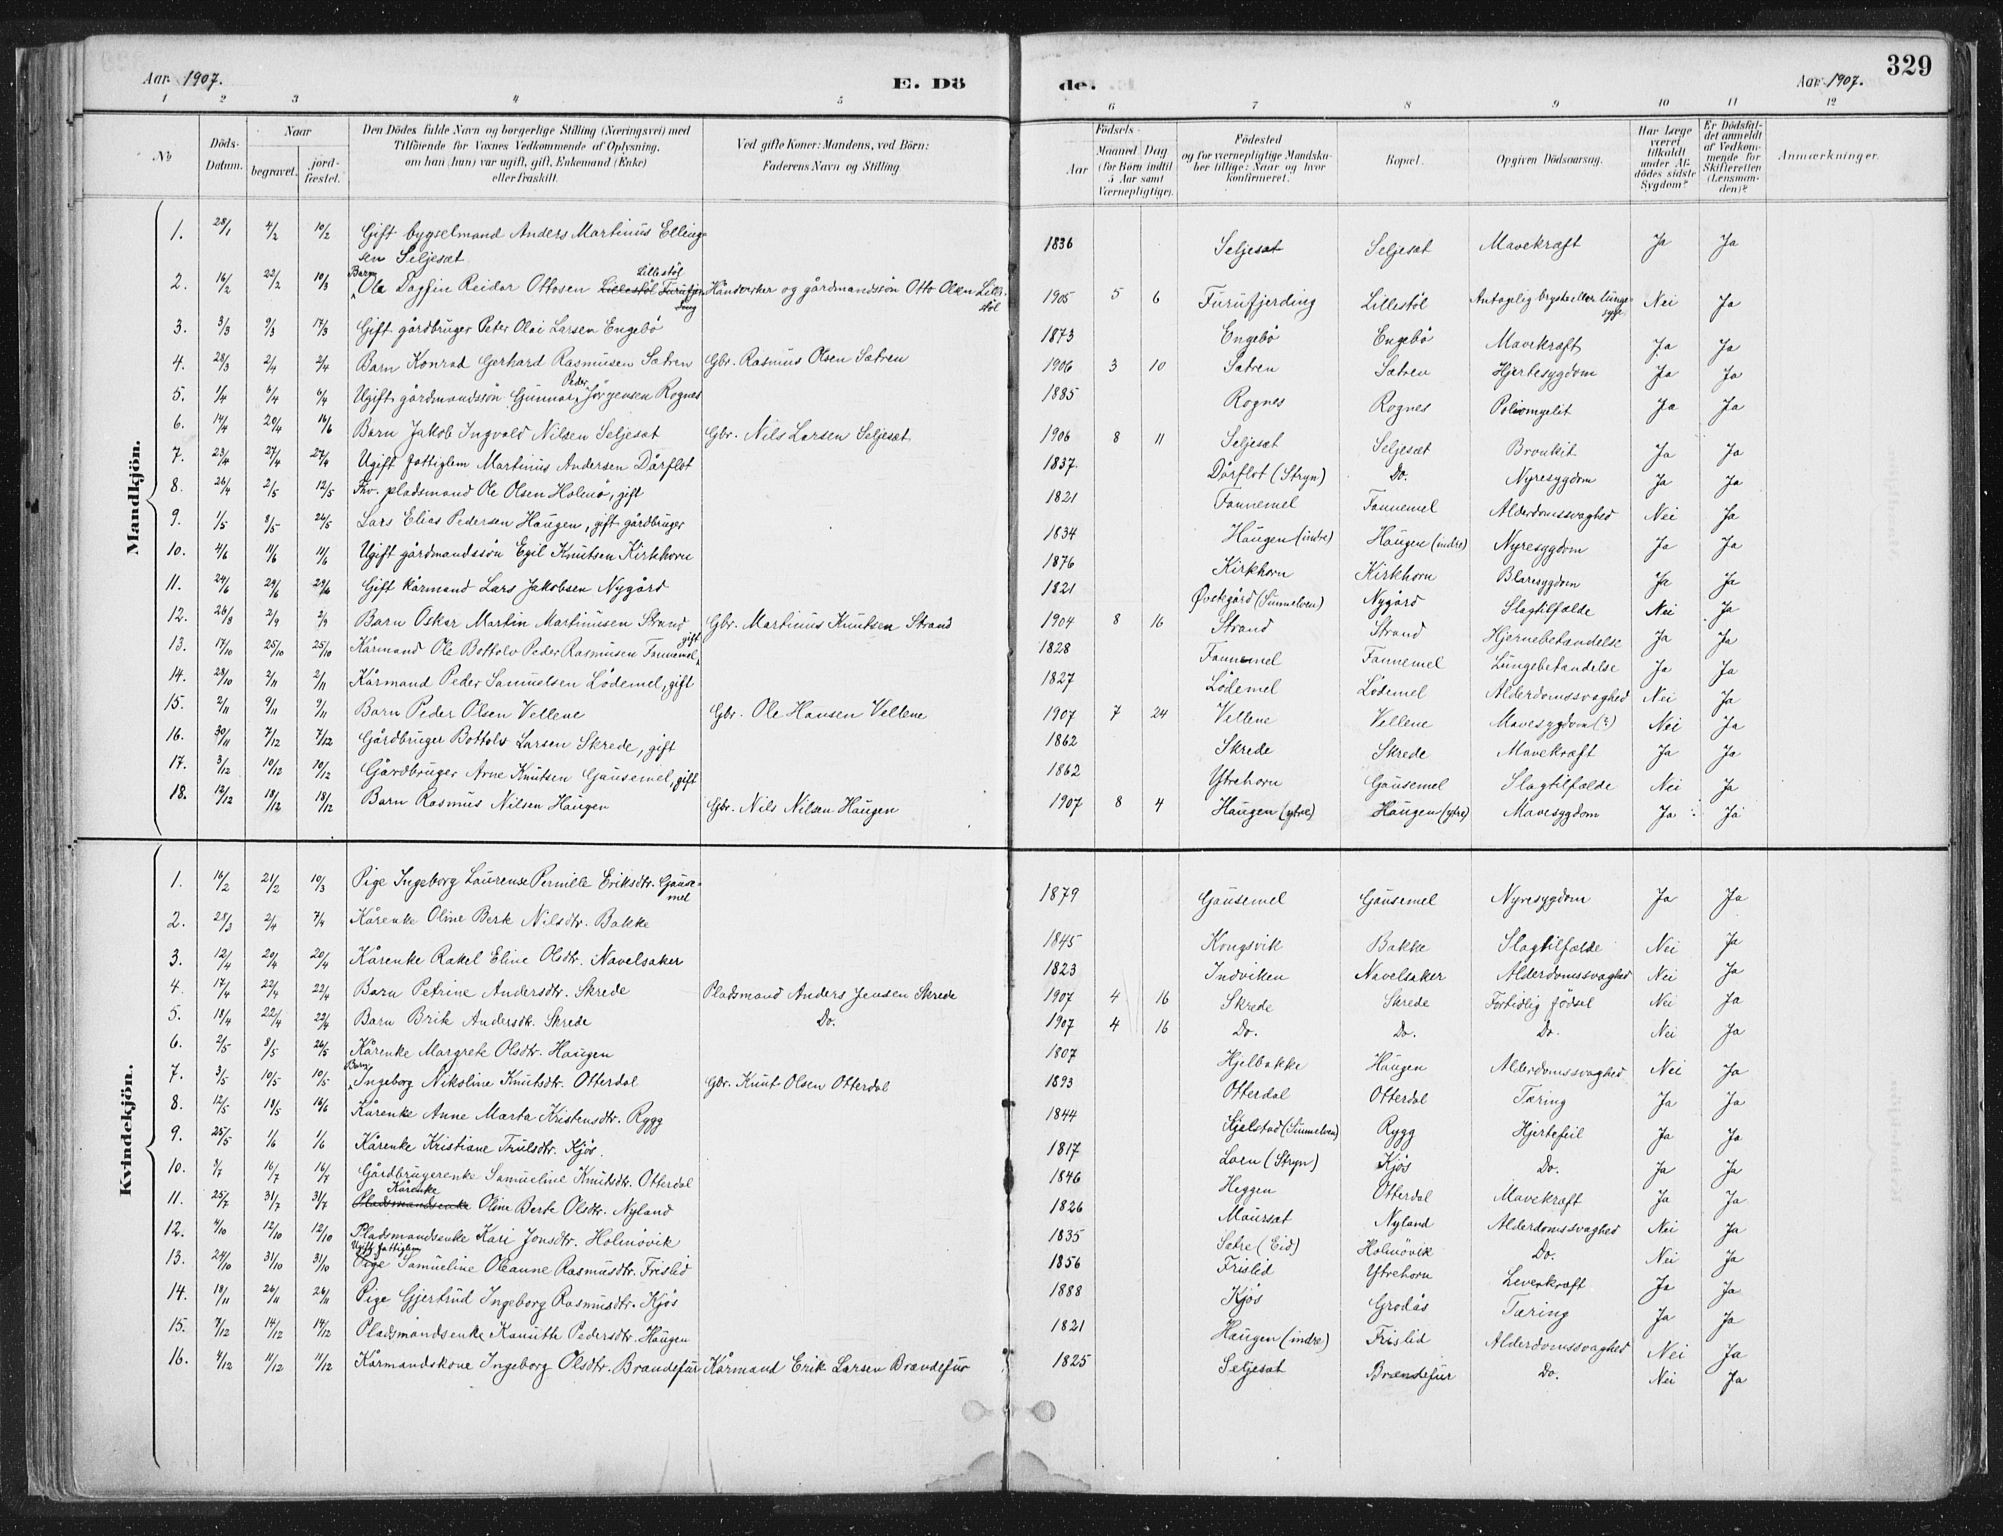 329
Aar. 1907. E. Dö de. Aar. 1907.
1 2 3 4 5 6 7 8 9 10 11 12
No
Döds-Datum.
Naar
begravet.
jord-fæstet.
Den Dödes fulde Navn og borgerlige Stilling (Næringsvei) med
Tilföiende for Voxnes Vedkommende af Oplysning,
om han (hun) var ugift, gift, Enkemand (Enke)
eller fraskilt.
Ved gifte Koner: Mandens, ved Börn:
Faderens Navn og Stilling.
Födsels-
Aar
Maaned Dag
(for Börn indtil
5 Aar samt
Værnepligtige).
Födested
og for værnepligtige Mandska-
ber tillige: Naar og hvor
konfirmeret.
Bopæl.
Opgiven Dödsaarsag.
Har Læge
været
tilkaldt
under Af-
dödes sidste
Sygdom?
Er Dödsfal-
det anmeldt
af Vedkom-
mende for
Skifteretten
(Lensman-
den)?
Anmærkninger.
Mandkjön.
1. 28/1 4/2 10/2 Gift bygselmand Anders Martinus Elling- 1836 Seljesæt Seljesæt Mavekræft Ja Ja
sen Seljesæt
2. 16/2 22/2 10/3 Barn Ole Dagfin Reidar Ottosen Lillestöl Furufjerding Lillestöl Håndverker og gårdmandssön Otto Olsen Lille-stöl 1905 5 6 Furufjerding Lillestöl Antagelig bryst eller lunge-syge Nei Ja
3. 3/3 9/3 17/3 Gift gårdbruger Peter Olai Larsen Engebö 1873 Engebö Engebö Mavekræft Ja Ja
4. 28/3 2/4 2/4 Barn Konrad Gerhard Rasmusen Sætren Gbr. Rasmus Olsen Sætren 1906 3 10 Sætren Sætren Hjertesygdom Ja Ja
5. 1/4 6/4 6/4 Ugift gårdmandssön Gunnar Peder Jörgensen Rognes 1885 Rognes Rognes Poliomyelit Ja Ja
6. 14/4 20/4 16/6 Barn Jakob Ingvald Nilsen Seljesæt Gbr. Nils Larsen Seljesæt 1906 8 11 Seljesæt Seljesæt Bronkit Ja Ja
7. 23/4 27/4 27/4 Ugift fattiglem Martinus Andersen Dårflot 1837 Dårflot (Stryn) Do. Nyresygdom Ja Ja
8. 26/4 2/5 12/5 Fhv. pladsmand Ole Olsen Holmö, gift 1821 Fannemel Fannemel Alderdomssvaghed Nei Ja
9. 1/5 8/5 26/5 Lars Elias Pedersen Haugen, gift gårdbruger 1834 Haugen (indre) Haugen (indre) Nyresygdom Ja Ja
10. 4/6 11/6 11/6 Ugift gårdmandssön Egil Knutsen Kirkhorn 1876 Kirkhorn Kirkhorn Blæresygdom Ja Ja
11. 24/6 29/6 29/6 Gift kårmand Lars Jakobsen Nygård 1821 Övstegård (Sunnelven) Nygård Slagtilfælde Nei Ja
12. 26/8 2/9 2/9 Barn Oskar Martin Martinusen Strand Gbr. Martinus Knutsen Strand 1904 8 16 Strand Strand Hjernebetændelse Ja Ja
13. 17/10 25/10 25/10 Kårmand Ole Bottolv Peder Rasmusen Fannemel, gift 1828 Fannemel Fannemel Lungebetændelse Ja Ja
14. 28/10 2/11 2/11 Kårmand Peder Samuelsen Lödemel, gift 1827 Lödemel Lödemel Alderdomssvaghed Nei Ja
15. 2/11 9/11 9/11 Barn Peder Olsen Vellene Gbr. Ole Hansen Vellene 1907 7 24 Vellene Vellene Mavesygdom (?) Nei Ja
16. 30/11 7/12 7/12 Gårdbruger Bottolv Larsen Skrede, gift 1862 Skrede Skrede Mavekræft Ja Ja
17. 3/12 10/12 10/12 Gårdbruger Arne Knutsen Gausemel, gift 1862 Ytrehorn Gausemel Slagtilfælde Nei Ja
18. 12/12 18/12 18/12 Barn Rasmus Nilsen Haugen Gbr. Nils Nilsen Haugen 1907 8 4 Haugen (ytre) Haugen (ytre) Mavesygdom Ja Ja
Kvindekjön.
1. 16/2 21/2 10/3 Pige Ingeborg Laurense Pernille Eriksdtr. Gause-mel 1879 Gausemel Gausemel Nyresygdom Ja Ja
2. 28/3 2/4 7/4 Kårenke Oline Berte Nilsdtr. Bakke 1845 Kongsvik Bakke Slagtilfælde Nei Ja
3. 12/4 20/4 20/4 Kårenke Rakel Eline Olsdtr. Navelsaker 1823 Indviken Navelsaker Alderdomssvaghed Nei Ja
4. 17/4 22/4 22/4 Barn Petrine Andersdtr. Skrede Pladsmand Anders Jensen Skrede 1907 4 16 Skrede Skrede Fortidlig födsel Nei Ja
5. 18/4 22/4 22/4 Barn Brite Andersdtr. Skrede Do. 1907 4 16 Do. Do. Do. Nei Ja
6. 2/5 8/5 26/5 Kårenke Margrete Olsdtr. Haugen 1807 Hjelbakke Haugen Alderdomssvaghed Nei Ja
7. 3/5 10/5 10/5 Barn Ingeborg Nikoline Knutsdtr. Otterdal Gbr. Knut Olsen Otterdal 1893 Otterdal Otterdal Tæring Ja Ja
8. 12/5 18/5 16/6 Kårenke Anne Marta Kristensdtr. Rygg 1844 Kjelstad (Sunnelven) Rygg Hjertefeil Ja Ja
9. 25/5 1/6 1/6 Kårenke Kristiane Trulsdtr. Kjös. 1817 Loen (Stryn) Kjös Do. Ja Ja
10. 9/7 16/7 16/7 Gårdbrugerenke Samueline Knutsdtr. Otterdal 1846 Heggen Otterdal Mavekræft Ja Ja
11. 25/7 31/7 31/7 Pladsmandsenke Kårenke Oline Berte Olsdtr. Nyland 1826 Maursæt Nyland Alderdomssvaghed Nei Ja
12. 4/10 12/10 12/10 Pladsmandsenke Kari Jonsdtr. Holmövik 1835 Sætre (Eid) Holmövik Do. Nei Ja
13. 24/10 31/10 31/10 Pige Ugift fattiglem Samueline Oleanne Rasmusdtr. Frislid 1856 Frislid Ytrehorn Leverkræft Ja Ja
14. 18/11 26/11 26/11 Pige Gjertrud Ingeborg Rasmusdtr. Kjös 1888 Kjös Grodås Tæring Ja Ja
15. 7/12 14/12 14/12 Pladsmandsenke Kanutte Pedersdtr. Haugen 1821 Haugen (indre) Frislid Alderdomssvaghed Nei Ja
16. 4/12 11/12 11/12 Kårmandskone Ingeborg Olsdtr. Brændefur Kårmand Erik Larsen Brændefur 1825 Seljesæt Brændefur Do. Nei Ja